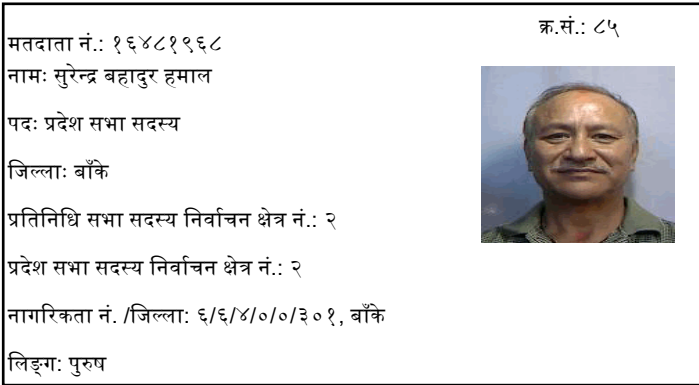 क्र.सं.: ८५
मतदाता नं.: १६४८१९६८
नामः सुरेन्द्र बहादुर हमाल
पदः प्रदेश सभा सदस्य
जिल्लाः बाँके
प्रतिनिधि सभा सदस्य निर्वाचन क्षेत्र नं.: २
प्रदेश सभा सदस्य निर्वाचन क्षेत्र नं.: २
नागरिकता नं. /जिल्ला: ६/६/४/०/०/३०१, बाँके
लिङ्ग: पुरुष